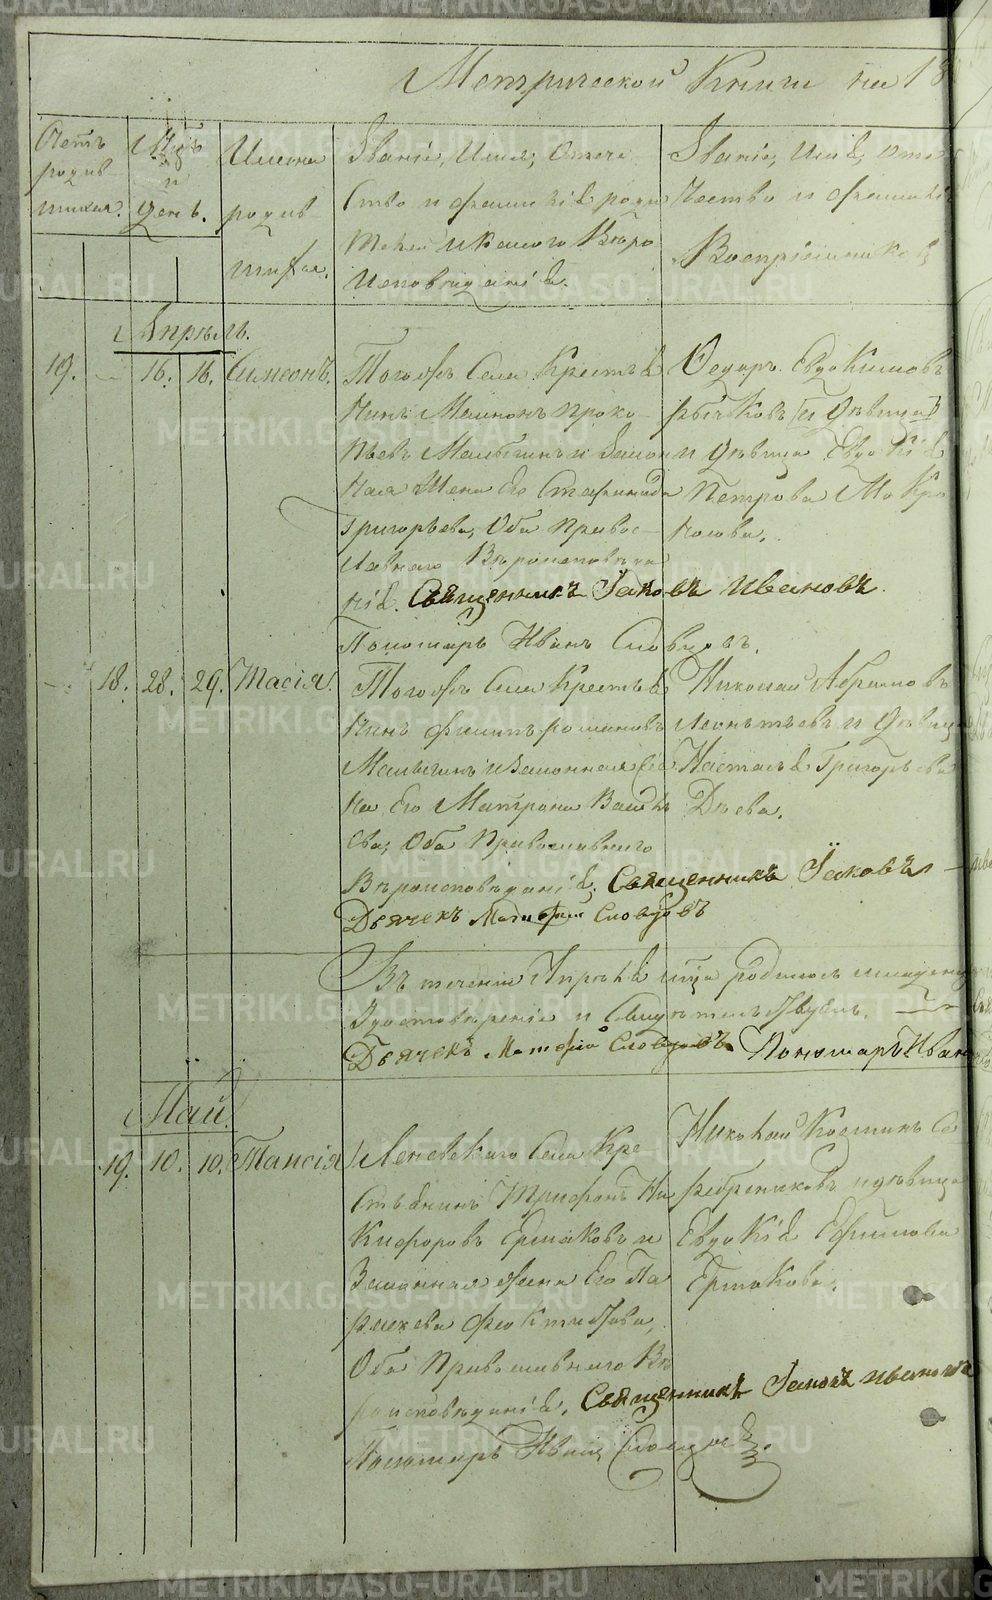 Метрической Книги на 18
Счетъ родив шихся.
Мц̃ъ и день.
Имена родив шихся.
Званіе, Имя, Отече
ство и фамилія роди
телей и какого Вѣро
исповѣданія.
Званіе, Имя, Отече
чество и фамилія
Воспріемниковъ
Апрѣль.
19. 16. 16. Симеонъ.
Тогожъ Села Крестья
нинъ Мамонъ Проко
пьевъ Малыгинъ и закон
ная жена его Стефанида
Григорьева, Оба Право
славнаго Вѣроисповѣда
нія. Священникъ Іаковъ Ивановъ.
Пономарь Иванъ Словцовъ.
Ѳедоръ Евдокимовъ
Рычковъ и дѣвица
и дѣвица Евдокія
Петрова Мокро
носова.
18. 28. 29. Таисія.
Тогожъ Села Крестья
нинъ Филипъ Романовъ
Малыгинъ и законная же
на его Матрона Василь
ева, Оба Православнаго
Вѣроисповѣданія. Священникъ Іаковъ
Дьячекъ Матфій Словцовъ
Николай Абрамовъ
Леонтьевъ и дѣвица
Настасья Григорьева
Дѣева.
Въ теченіи Апрѣля мц̃а родилось младенцевъ
Дьячекъ Матфій Словцовъ. Пономарь Иван
Май.
19. 10. 10. Таисія
Леневскаго Села Кре
стьянинъ Трифонъ Ни
кифоровъ Ермаковъ и
Законная жена Его Па
раскева Феоктистова,
Оба Православнаго Вѣ
роисповѣданія. Священникъ Іаковъ Ивановъ
Пономарь Иванъ Словцовъ.
Николай Костинъ Се
ребрениковъ и дѣвица
Евдокія Ефимова
Ермакова.
METRIKI.GASO-URAL.RU